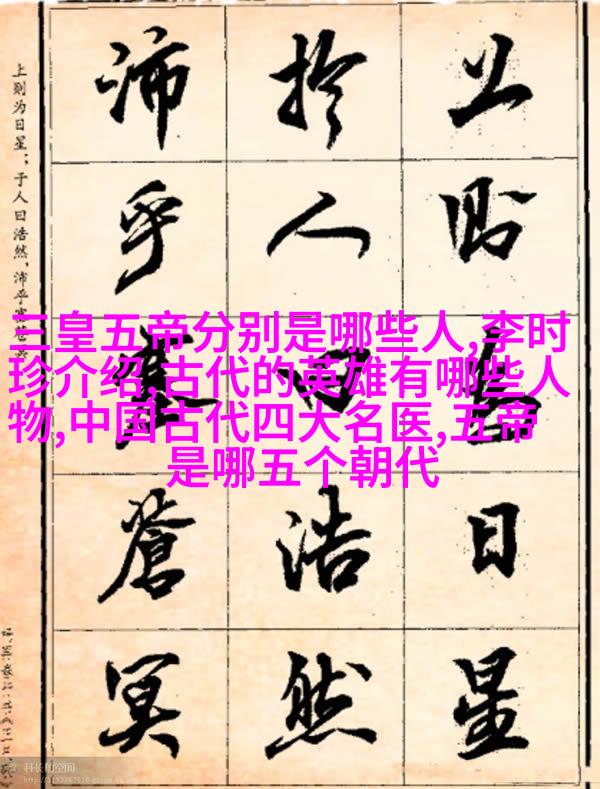 三皇五帝分别是哪些人,李时
珍介绍,古代的英雄有哪些人
物,中国古代四大名医,五帝
是哪五个朝代
上则为日星
於人曰浩然
沛乎塞蒼冥
上则为日星；于人曰浩然，沛乎塞苍
科长的空间